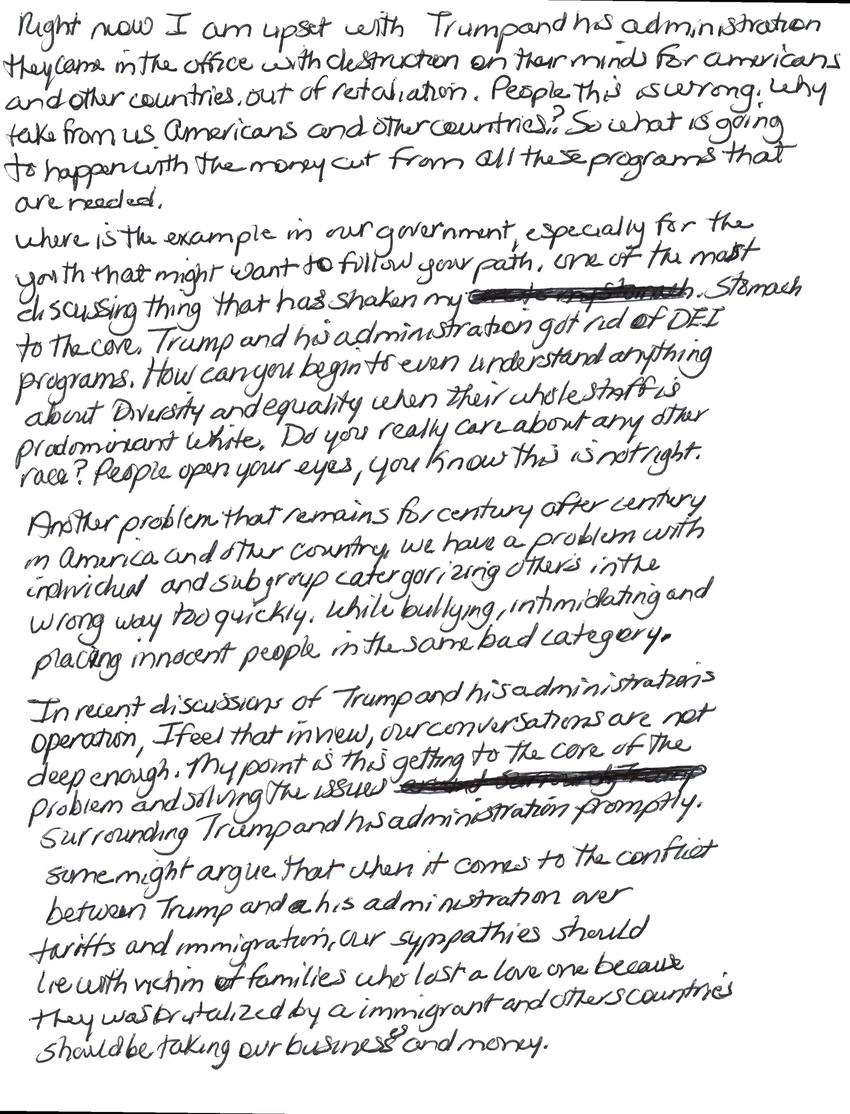 Right now I am upset with Trump and his administration
they came in the office with destruction on their minds for americans
and other countries, out of retaliation. People this is wrong. Why
take from us Americans and other countries? So what is going
to happen with the money cut from all these programs that
are needed.
where is the example in our government, especially for the
youth that might want to follow your path. one of the most
discussing thing that has shaken my Stomach
to the core. Trump and his administration got rid of DEI
programs. How can you begin to even understand anything
about Diversity and equality when their whole staff is
prodominant White. Do you really care about any other
race? People open your eyes, you know this is not right.
Another problem that remains for century after century
in America and other country, we have a problem with
individual and subgroup catergorizing others in the
wrong way too quickly. While bullying, intimidating and
placing innocent people in the same bad category.
In recent discussions of Trump and his administrations
operation, I feel that in view, our conversations are not
deep enough. My point is this getting to the core of the
problem and solving the issues
surrounding Trump and his administration promptly.
some might argue that when it comes to the conflict
between Trump and his administration over
tariffs and immigration, our sympathies should
lie with victim of families who lost a love one because
they was brutalized by a immigrant and others countries
should be taking our businesses and money.